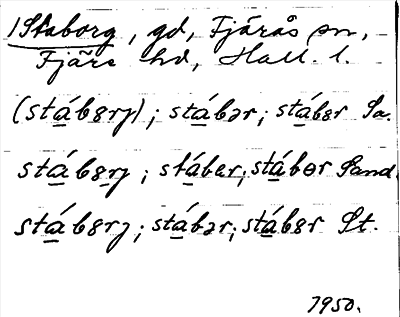 1Staborg, gd, Fjärås sn,
Fjäre hd, Hall. l.
(stábɞrȷ); stábər; stábɞr Sa.
stábɞrȷ; stáber; stábɵr Sand.
stábɞrȷ; stábər; stábɞr St.
1950.